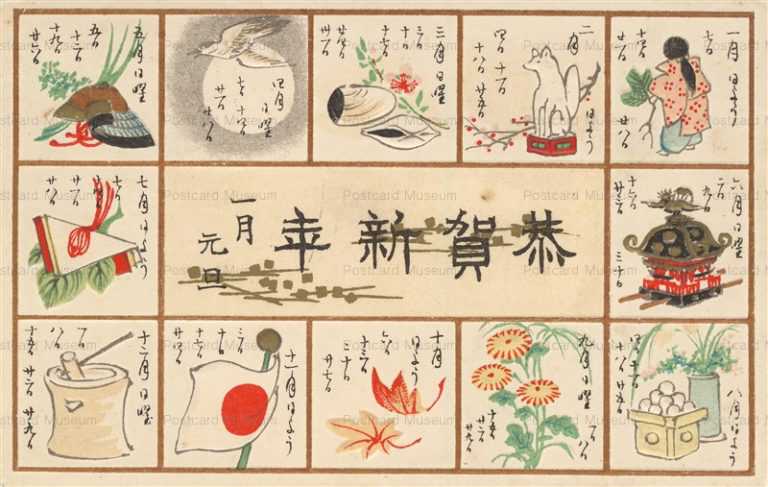 恭賀新年
一月
元旦
一月 日よう
七日
十四日
廿一日 廿八日
二月 日よう
四日 十一日
十八日 廿五日
三月 日曜
三日
十日
十七日
廿四日
卅一日
四月 日曜
七日 十四日
廿一日
廿八日
五月 日曜
五日
十二日
十九日
廿六日
六月 日曜
二日 九日
十六日
廿三日 三十日
七月 日よう
七日
十四日
廿一日
廿八日
八月 日よう
四日 十一日
十八日 廿五日
九月 日曜
一日 八日
十五日
廿二日
廿九日
十月
日よう
六日
十三日
二十日
廿七日
十一月 日よう
三日
十日
十七日
廿四日
十二月 日曜
一日
八日
十五日 廿二日 廿九日
Postcard Museum